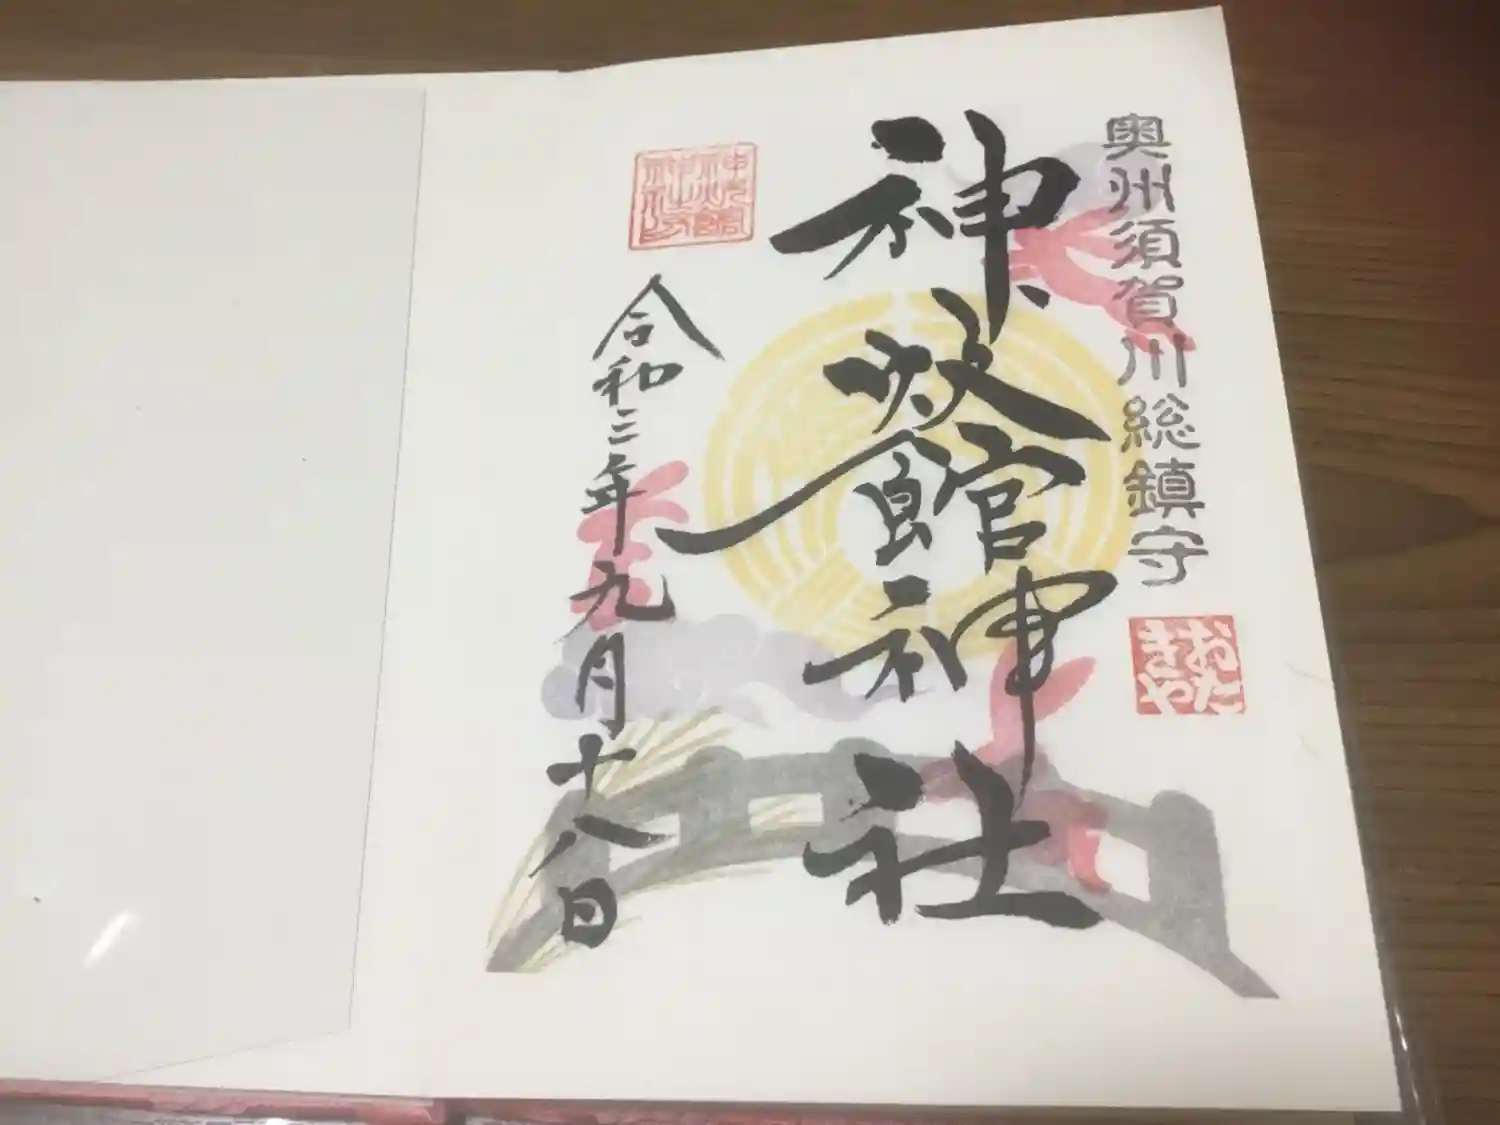 奥州須賀川総鎮守
おたきや
神炊館神社
神炊館神社印
令和三年九月十八日